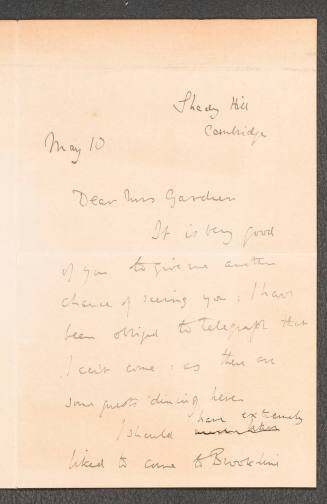 Shady Hill
Cambridge
May 10
Dear Mrs Gardner
It is very good
of you to give me another
chance of seeing you: I have
been obliged to telegraph that
I can't come: as there are
some guests dining here
I should have extremely
liked to come to Brookline